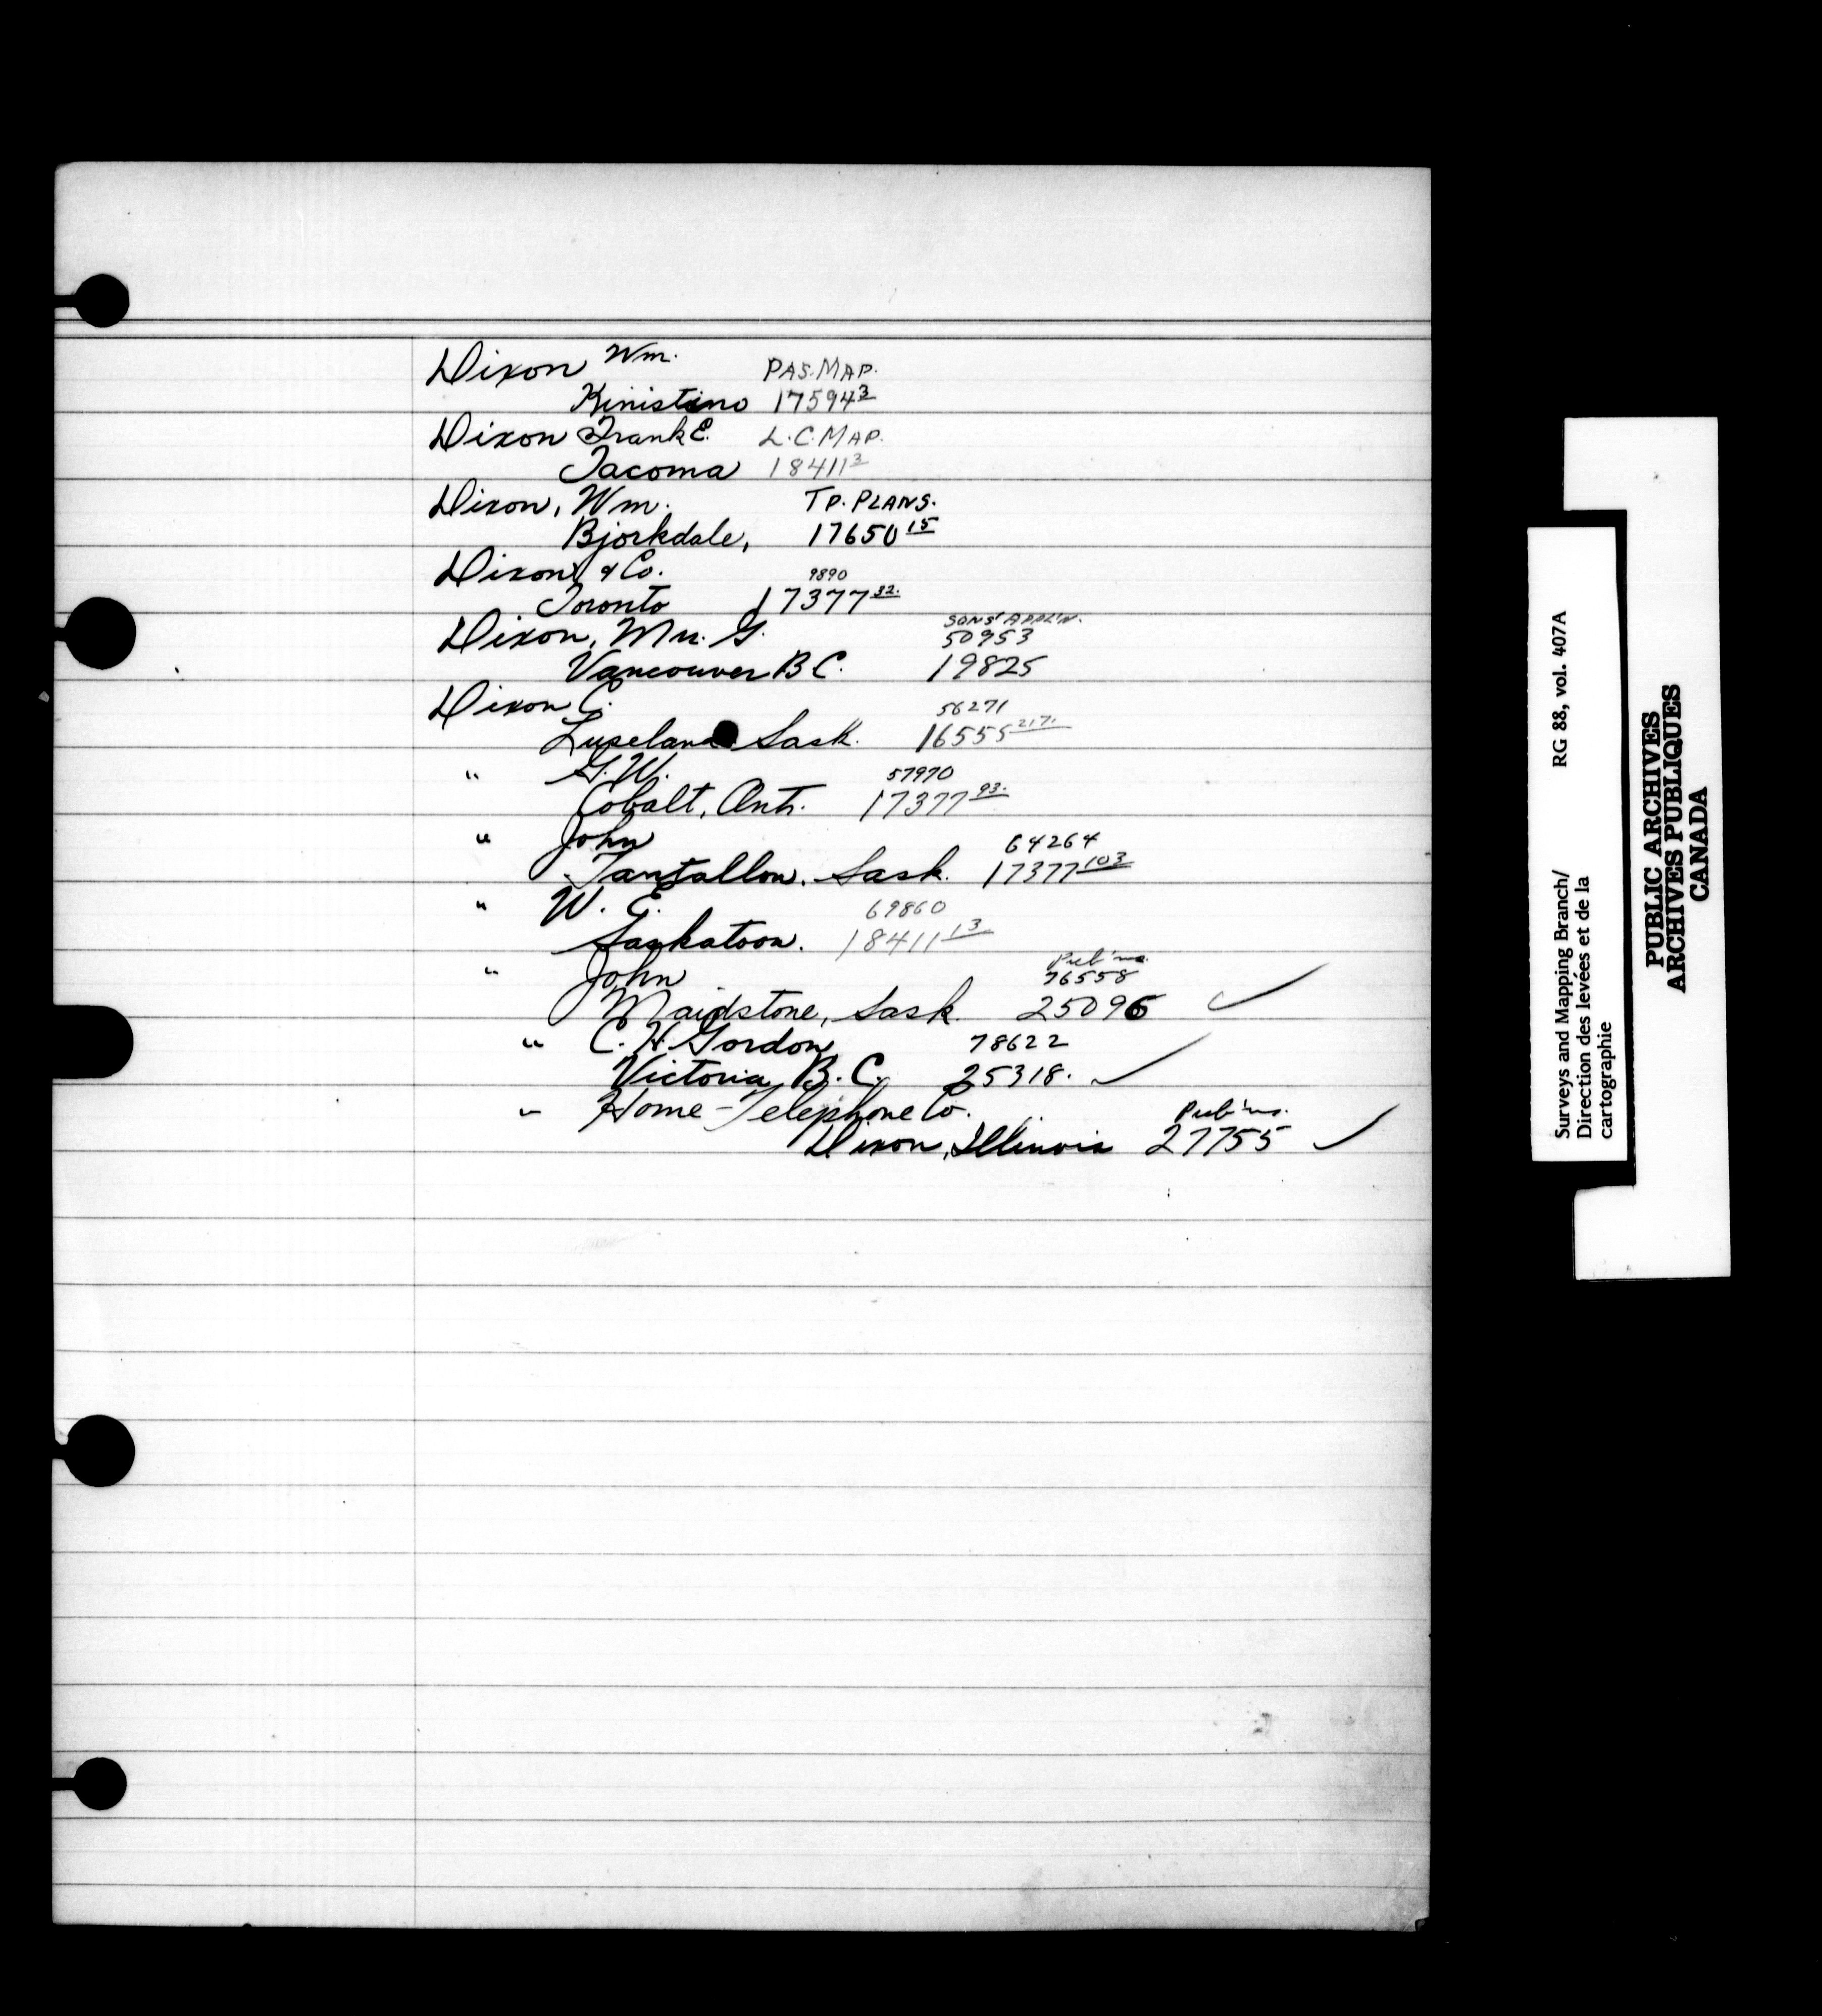 Dixon Wm. PAS. MAP.
Kinistino 17594 3
Dixon Frank E. L.C. MAP.
Tacoma 18411 3
Dixon, Wm. TP. PLANS.
Bjorkdale, 17650 15
Dixon & Co. 9890
Toronto 17377 32.
Dixon, Mrs. G. SONS' APPL'N. 50953
Vancouver B C. 19825
Dixon C. 56271
Luseland Sask. 16555 217.
" G. W. 57970
Cobalt, Ont. 17377 93.
" John 64264
Tantallon, Sask. 17377 103
" W. E. 69860
Saskatoon. 18411 13
" John Pub'ns. 76558
Maidstone, Sask. 25096 ✓
" C. H. Gordon 78622
Victoria, B. C. 25318. ✓
" Home-Telephone Co. Pub'ns.
Dixon, Illinois 27755 ✓
Surveys and Mapping Branch/ RG 88, vol. 407A
Direction des levées et de la
cartographie
PUBLIC ARCHIVES
ARCHIVES PUBLIQUES
CANADA